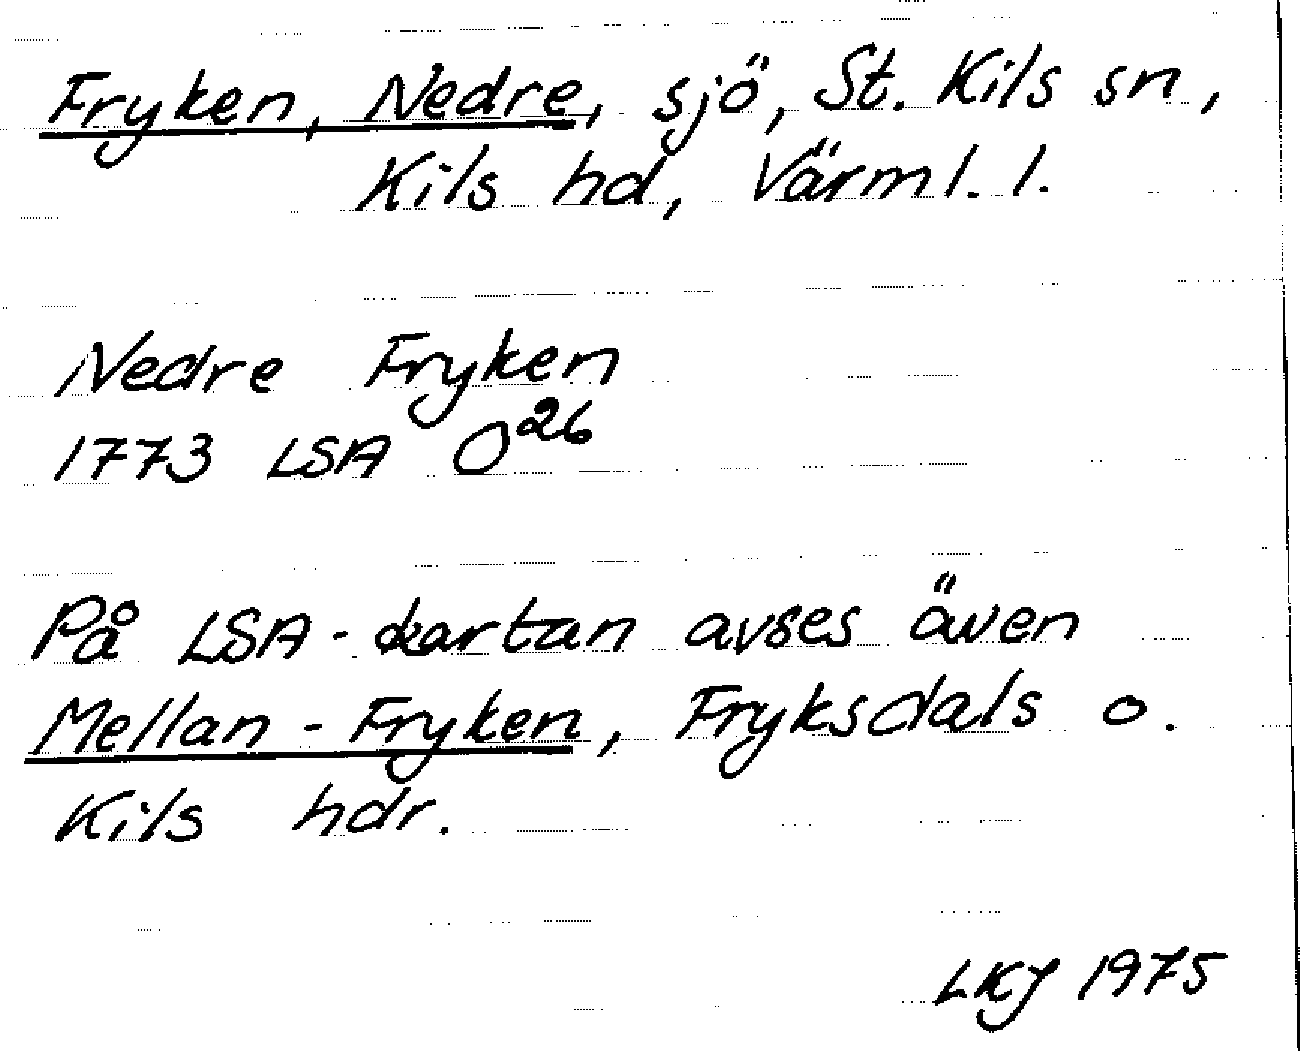 Fryken, Nedre, sjö, St. Kils sn,
Kils hd, Värml. l.
Nedre Fryken
1773 LSA O26
På LSA-kartan avses även
Mellan-Fryken, Fryksdals o.
Kils hdr.
LKJ 1975